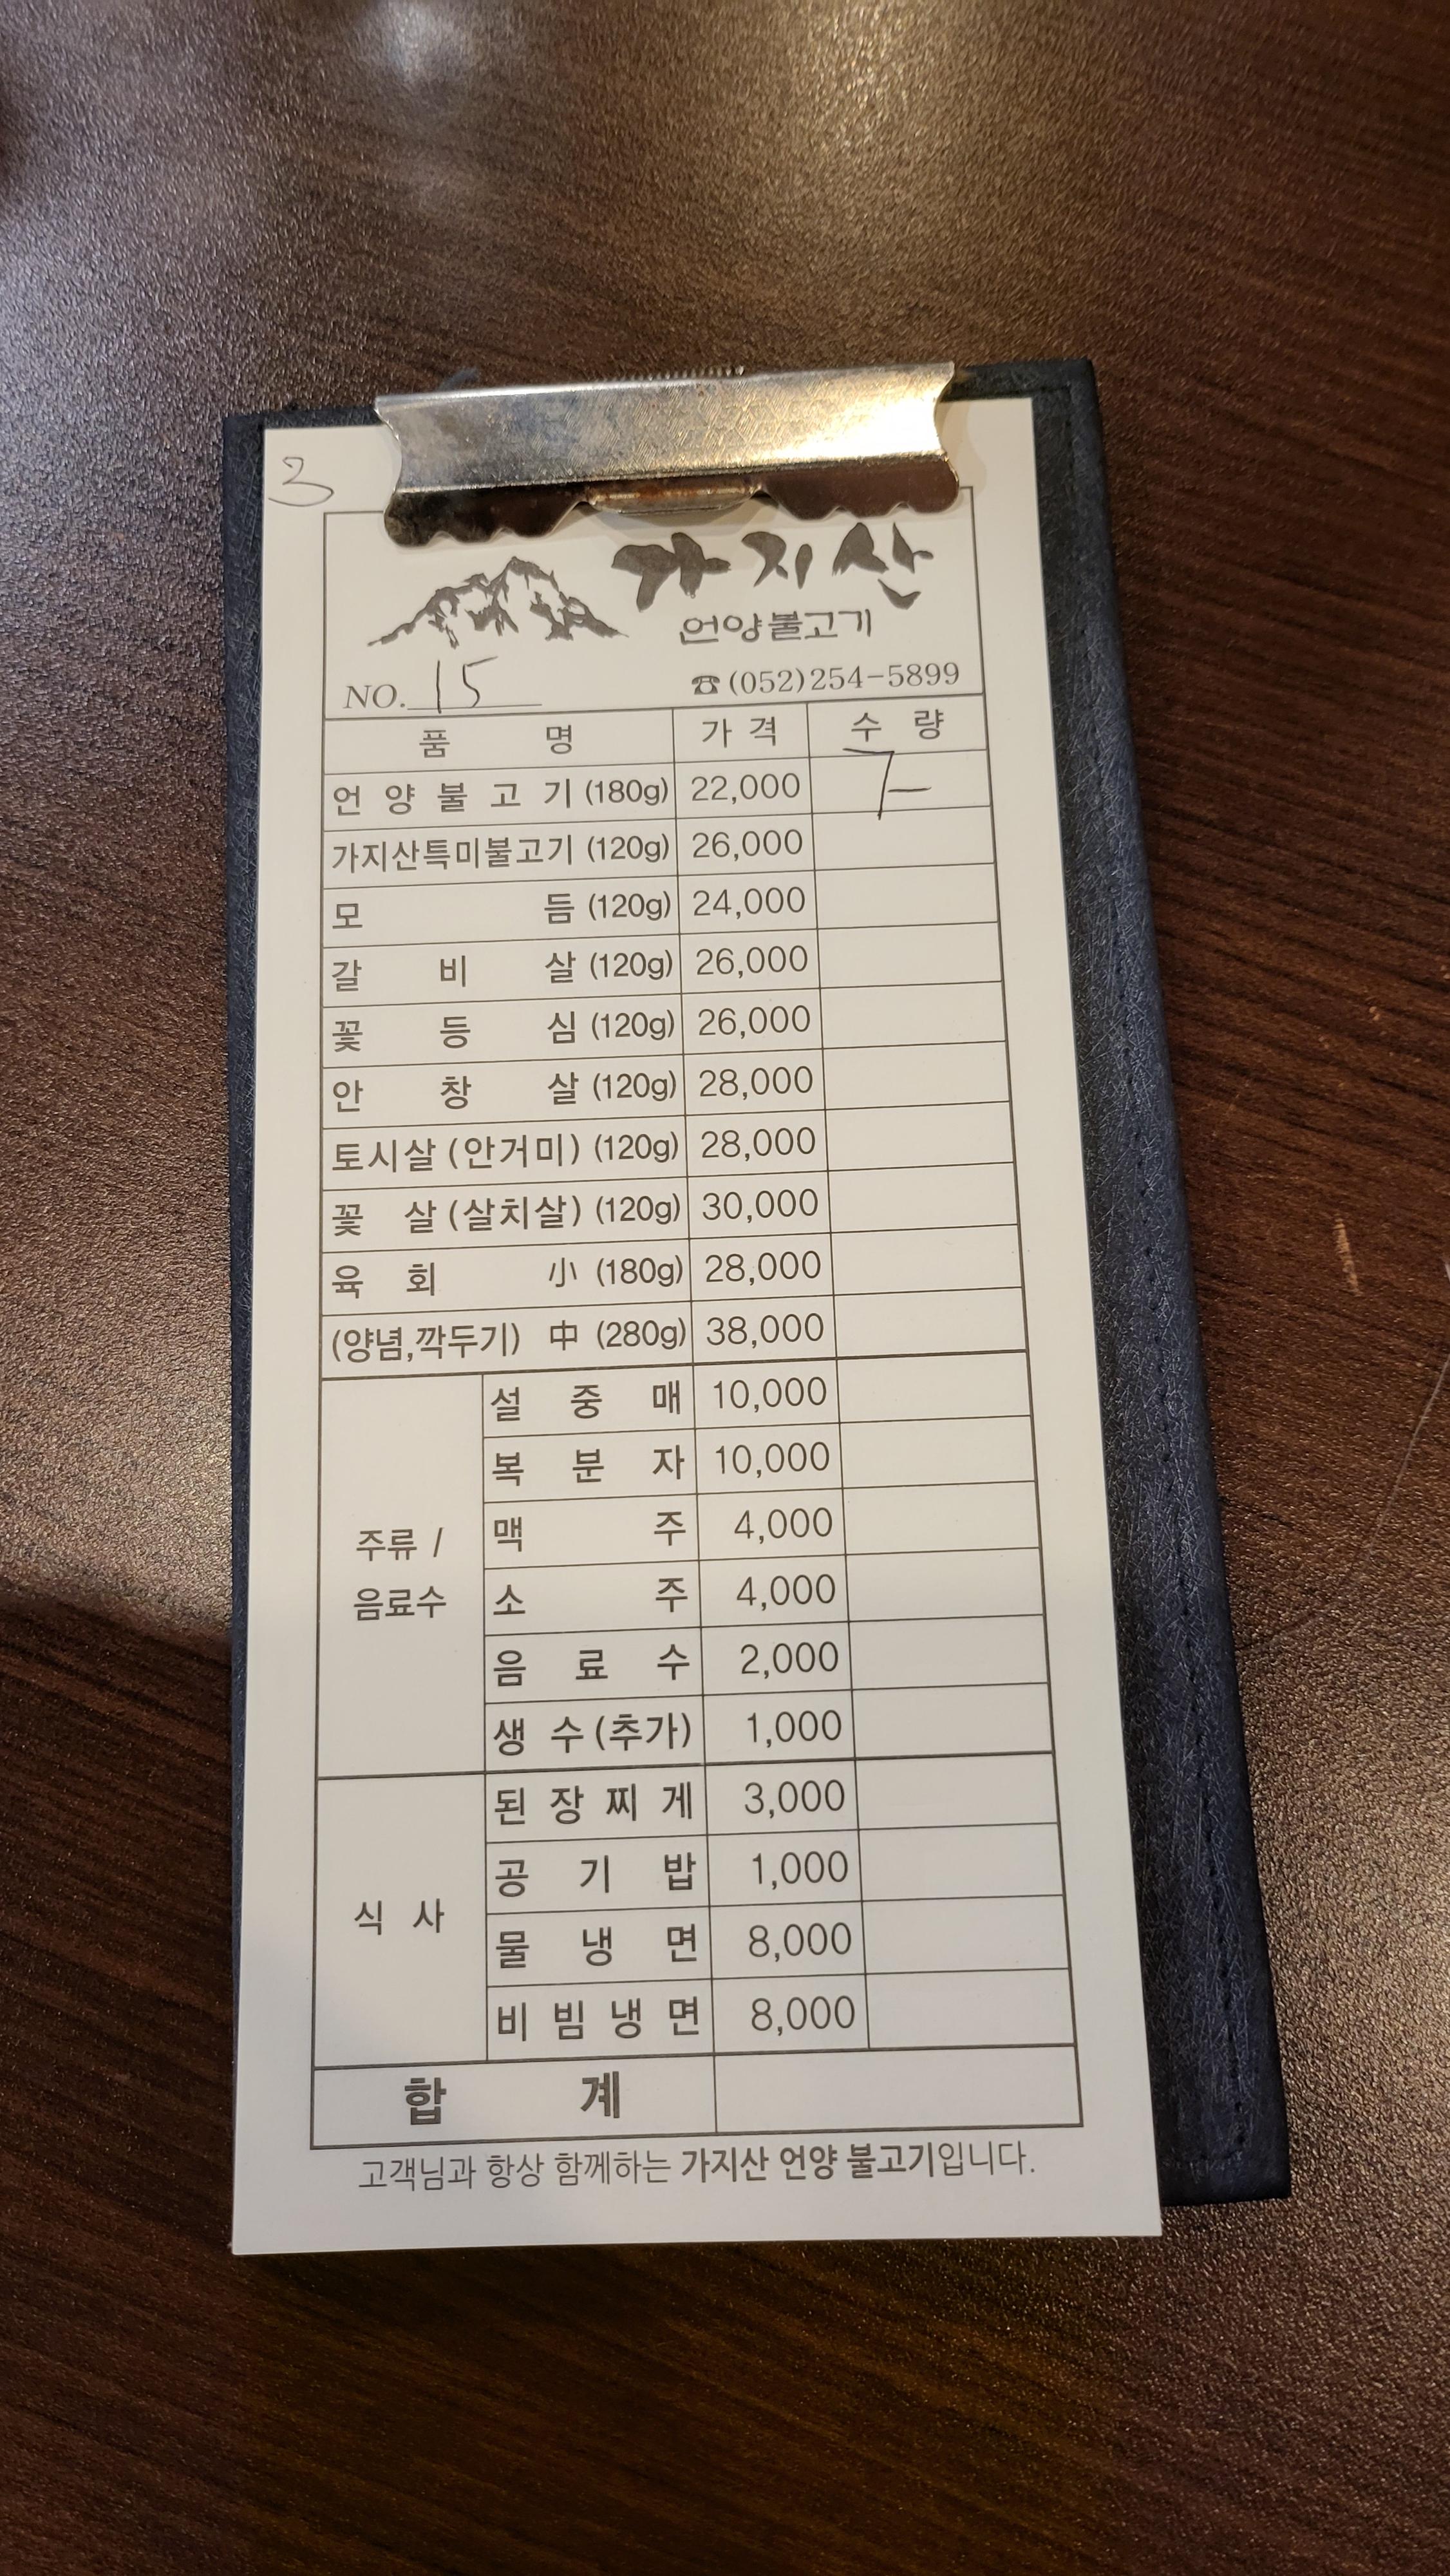 3
가지산
언양불고기
NO. 15 ☎(052)254-5899
품 명 가 격 수 량
언 양 불 고 기 (180g) 22,000
가지산특미불고기 (120g) 26,000
모 듬 (120g) 24,000
갈 비 살 (120g) 26,000
꽃 등 심 (120g) 26,000
안 창 살 (120g) 28,000
토시살 (안거미) (120g) 28,000
꽃 살 (살치살) (120g) 30,000
육 회 小 (180g) 28,000
(양념,깍두기) 中 (280g) 38,000
주류 / 음료수
설 중 매 10,000
복 분 자 10,000
맥 주 4,000
소 주 4,000
음 료 수 2,000
생 수 (추가) 1,000
식 사
된 장 찌 게 3,000
공 기 밥 1,000
물 냉 면 8,000
비 빔 냉 면 8,000
합 계
고객님과 항상 함께하는 가지산 언양 불고기입니다.